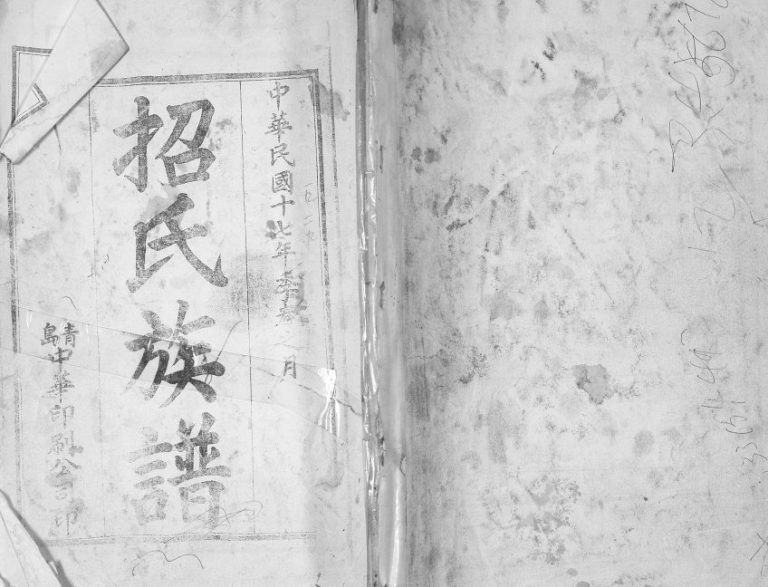 中華民國十七年季春之月
招氏族譜
青島中華印刷公司印